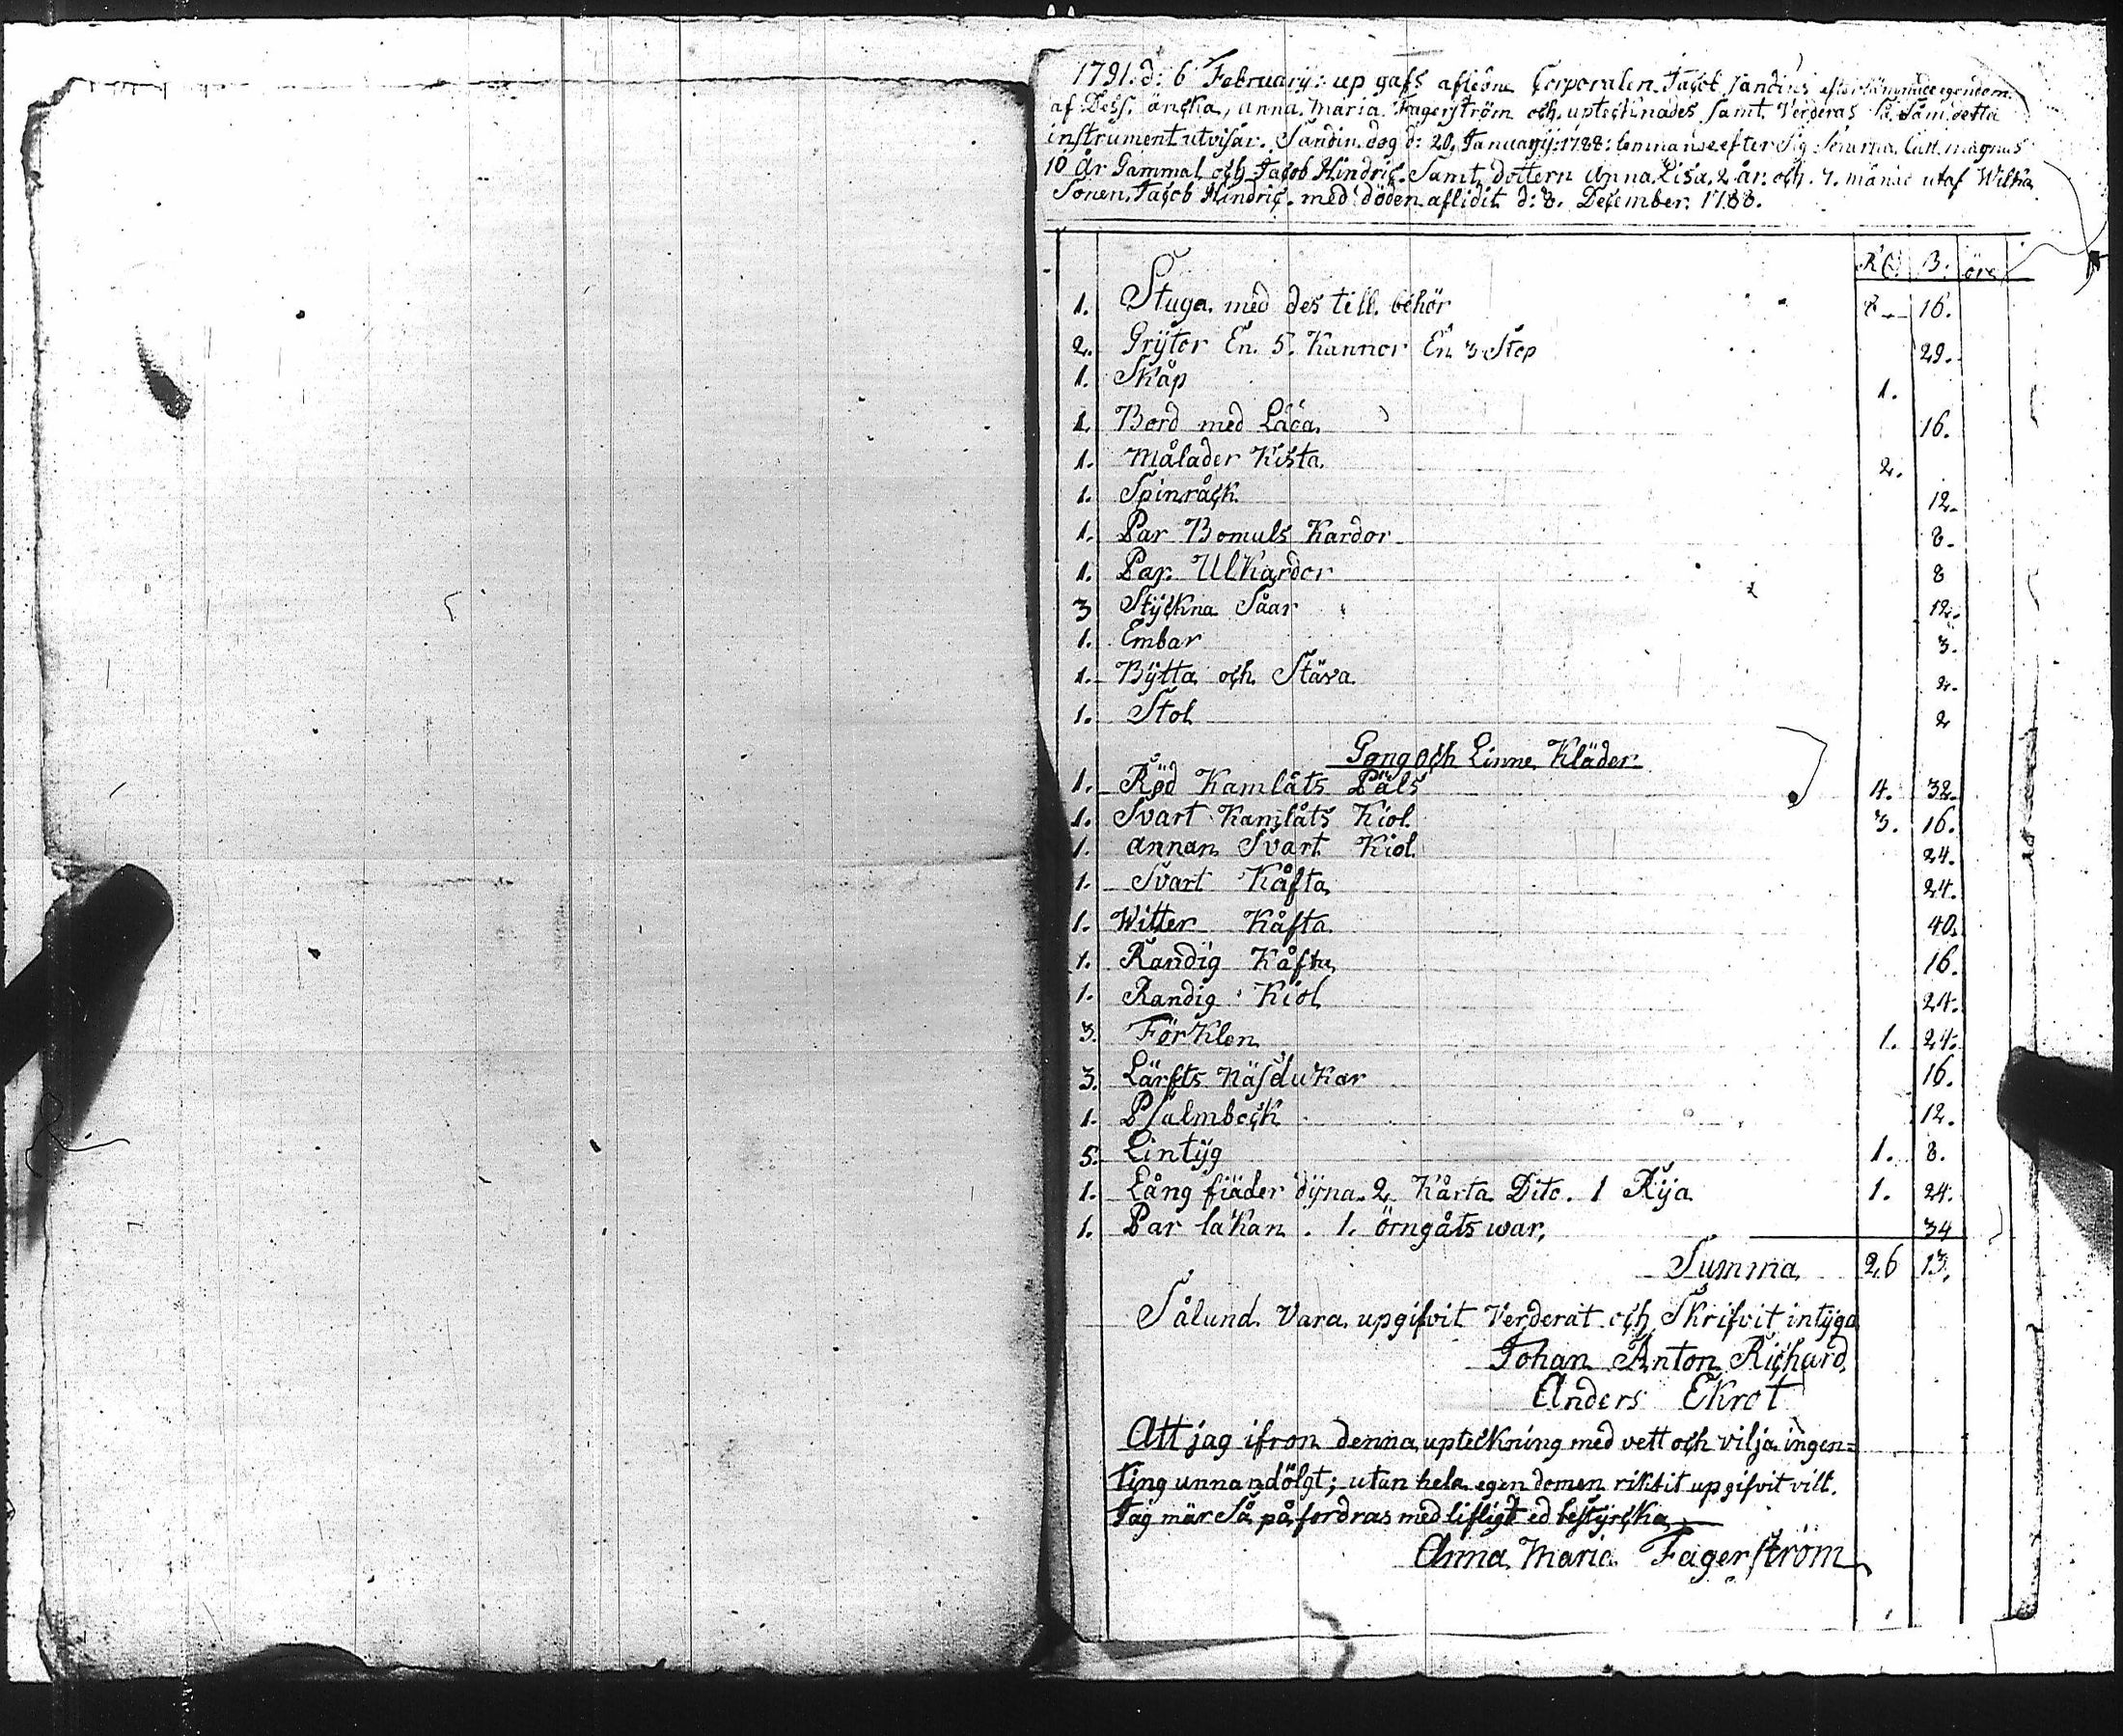 1791. d: 6 February: up gafs afledne Corporalen Jacob Sandins efterlämnade egendom
af Dess. äncka, anna Maria Fagerström och uptecknades samt Verderas Så Som detta
instrument utvisar. Sandin dog d: 20, January: 1788: lemnandes efter Sig Sönerna Carl magnus
10 År Gammal och Jacob Hindric. Samt dottern Anna Lisa, 2 år och. 7. månad utaf Wilka
Sonen, Jacob Hindric. med döden aflidit d: 8. December: 1788.
Rd. B: öre
1. Stuga med des till. behör 8 16.
2. Grytor En. 5. Kannor En 3 Stop 29.
1. Skåp 1.
1. Bord med Låda, 16.
1. Målader Kista. 2.
1. Spinråck 12.
1. Par Bomuls Kardor 8.
1. Par. Ulkardor 8
3 Styckna Såar 12.
1. Embar 3.
1. Bytta och Stäva 2.
1. Stol 2
Gong och Linne Kläder
1. Röd Kamlåts Päls 4. 32.
1. Svart Kamlåts Kiol. 3. 16.
1. annan Svart Kiol. 24.
1. Svart Kåfta 24.
1. Witter Kåfta 40.
1. Randig Kåfta 16.
1. Randig Kiol 24.
3. För Klen 1. 24.
3. Lärfts Näsdukar 16.
1. Psalmbock 12.
5. Lintyg 1. 8.
1. Lång fiäder dyna. 2 Kårta Dito. 1 Rya 1. 24.
1. Par lakan. 1. örngåts war, 34
Summa 26 13.
Sålund Vara upgifvit Verderat och Skrifvit intyga
Johan Anton Richard
Anders Ekrot
Att jag ifron denna upteckning med vett och vilja ingen=
ting unnandölgt; utan hela egendomen riktit upgifvit vilt.
Jag när Så på fordras med lifligt ed bestyrcka
Anna Maria Fagerström